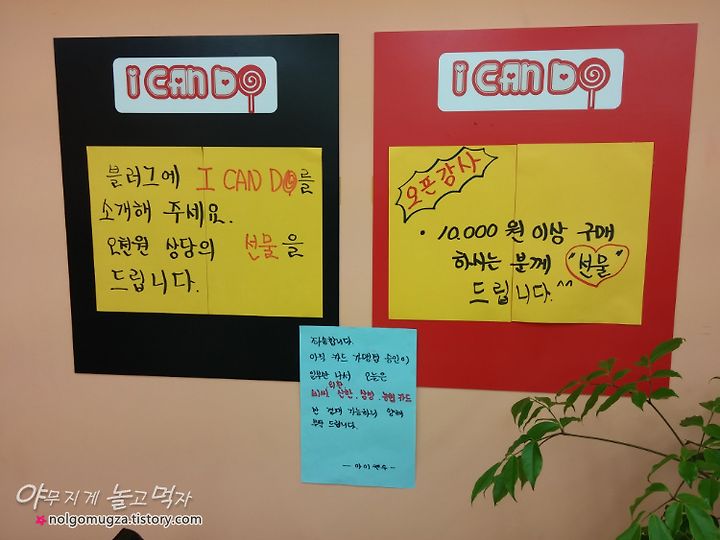 I CAN DO
블러그에 I CAN DO를
소개해 주세요.
오천원 상당의 선물을
드립니다.
I CAN DO
오픈감사
• 10.000원 이상 구매
하시는 분께 "선물"
드립니다.^^
죄송합니다.
아직 카드 가맹점 승인이
일부만 나서 오늘은
외환
비씨. 신한. 삼성. 농협 카드
만 결제 가능하니 양해
부탁 드립니다.
- 아이캔두 -
야무지게 놀고먹자
nolgomugza.tistory.com